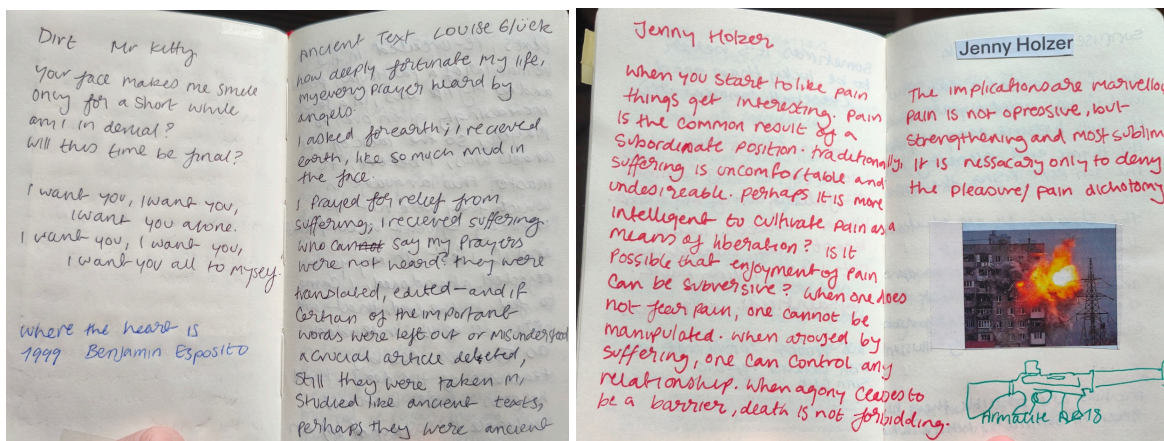 Dirt Mr Kitty
Your face makes me smile
only for a short while
am I in denial?
will this time be final?
I want you, I want you,
I want you alone.
I want you, I want you,
I want you all to myself.
where the heart is
1999 Benjamin Esposito
Ancient Text Louise Glück
how deeply fortunate my life,
my every prayer heard by
angels.
I asked for earth; I recieved
earth, like so much mud in
the face.
I prayed for relief from
suffering; I recieved suffering.
who can say my prayers
were not heard? they were
translated, edited — and if
certian of the important
words were left out or misunderstood
a crucial article deleted,
still they were taken in,
studied like ancient texts,
perhaps they were ancient
Jenny Holzer
when you start to like pain
things get interesting. pain
is the common result of a
subordinate position. traditionally,
suffering is uncomfortable and
undesireable. perhaps it is more
intelligent to cultivate pain as a
means of liberation? is it
possible that enjoyment of pain
can be subversive? when one does
not fear pain, one cannot be
manipulated. when aroused by
suffering, one can control any
relationship. when agony ceases to
be a barrier, death is not forbidding.
Jenny Holzer
The implications are marvellou
pain is not opressive, but
strengthening and most sublim
it is nessacary only to deny
the pleasure/pain dichotomy
Armalite AR18